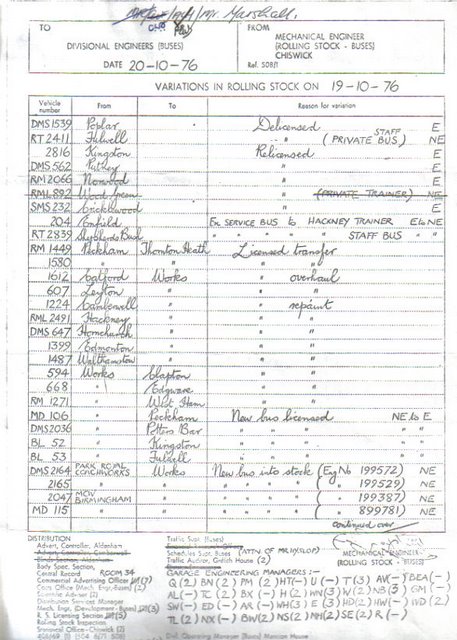 Mr Marshall.
TO
FROM
DIVISIONAL ENGINEERS (BUSES)
MECHANICAL ENGINEER
(ROLLING STOCK - BUSES)
CHISWICK
DATE 20-10-76
Ref. 508/1
VARIATIONS IN ROLLING STOCK ON 19-10-76
Vehicle number From To Reason for variation
DMS 1539 Poplar Delicensed E
RT 2411 Fulwell " (PRIVATE STAFF BUS) NE
2816 Kingston Relicensed E
DMS 562 Putney " E
RM 2066 Norwood " E
RML 892 Wood Green " (PRIVATE TRAINER) NE
SMS 232 Cricklewood " E
204 Enfield Ex SERVICE BUS to HACKNEY TRAINER E to NE
RT 2839 Shepherds Bush " " " " STAFF BUS " "
RM 1449 Peckham Thornton Heath Licensed transfer
1580 " " " "
1612 Catford Works " overhaul
607 Leyton " " "
1224 Camberwell " " repaint
RML 2491 Hackney " " "
DMS 647 Hornchurch " " "
1399 Edmonton " " "
1487 Walthamstow " " "
594 Works Clapton " "
668 " Edgware " "
RM 1271 " West Ham " "
MD 106 " Peckham New bus licensed NE to E
DMS 2036 " Potters Bar " " " " "
BL 52 " Kingston " " " " "
BL 53 " Fulwell " " " " "
DMS 2164 PARK ROYAL COACHWORKS Works New bus into stock (Eng No 199572) NE
2165 " " " " " " ( " 199529) NE
2047 MCW BIRMINGHAM " " " " " ( " 199387) NE
MD 115 " " " " " " ( " 899781) NE
continued over
DISTRIBUTION
Advert. Controller, Aldenham
Body Spec. Section,
Central Record ROOM 34
Commercial Advertising Officer (7)
Cars Office (Mech. Engr. Buses) (2)
Scientific Adviser (2)
Distribution Services Manager
Mech. Engr. (Development - Buses) (3)
R. S. Licensing Section (5)
Rolling Stock Inspection
Traffic Supt. (Buses)
Schedules Supt. Buses (ATTN. OF
Traffic Auditor, Griffith House (2)
MECHANICAL ENGINEER
(ROLLING STOCK - BUSES)
GARAGE ENGINEERING MANAGERS :-